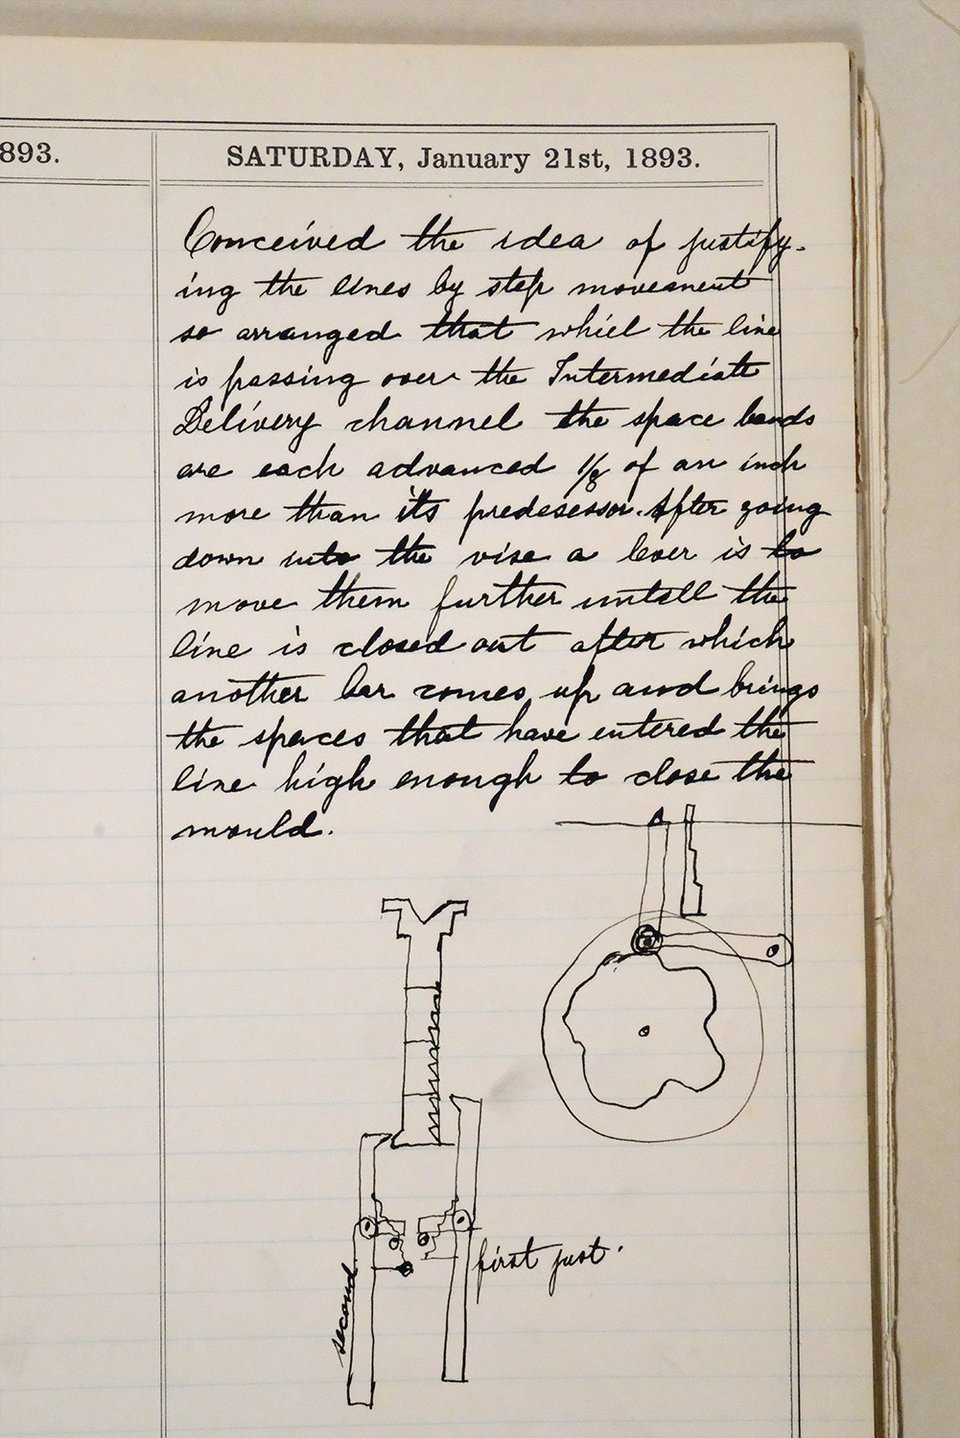 893.
SATURDAY, January 21st, 1893.
Conceived the idea of justify-
ing the lines by step movement
so arranged that whiel the line
is passing over the Intermediate
Delivery channel the space bands
are each advanced 1/8 of an inch
more than its predesessor. After going
down into the vise a lever is to
move them further untell the
line is closed out after which
another bar comes up and brings
the spaces that have entered the
line high enough to close the
mould.
first just.
second